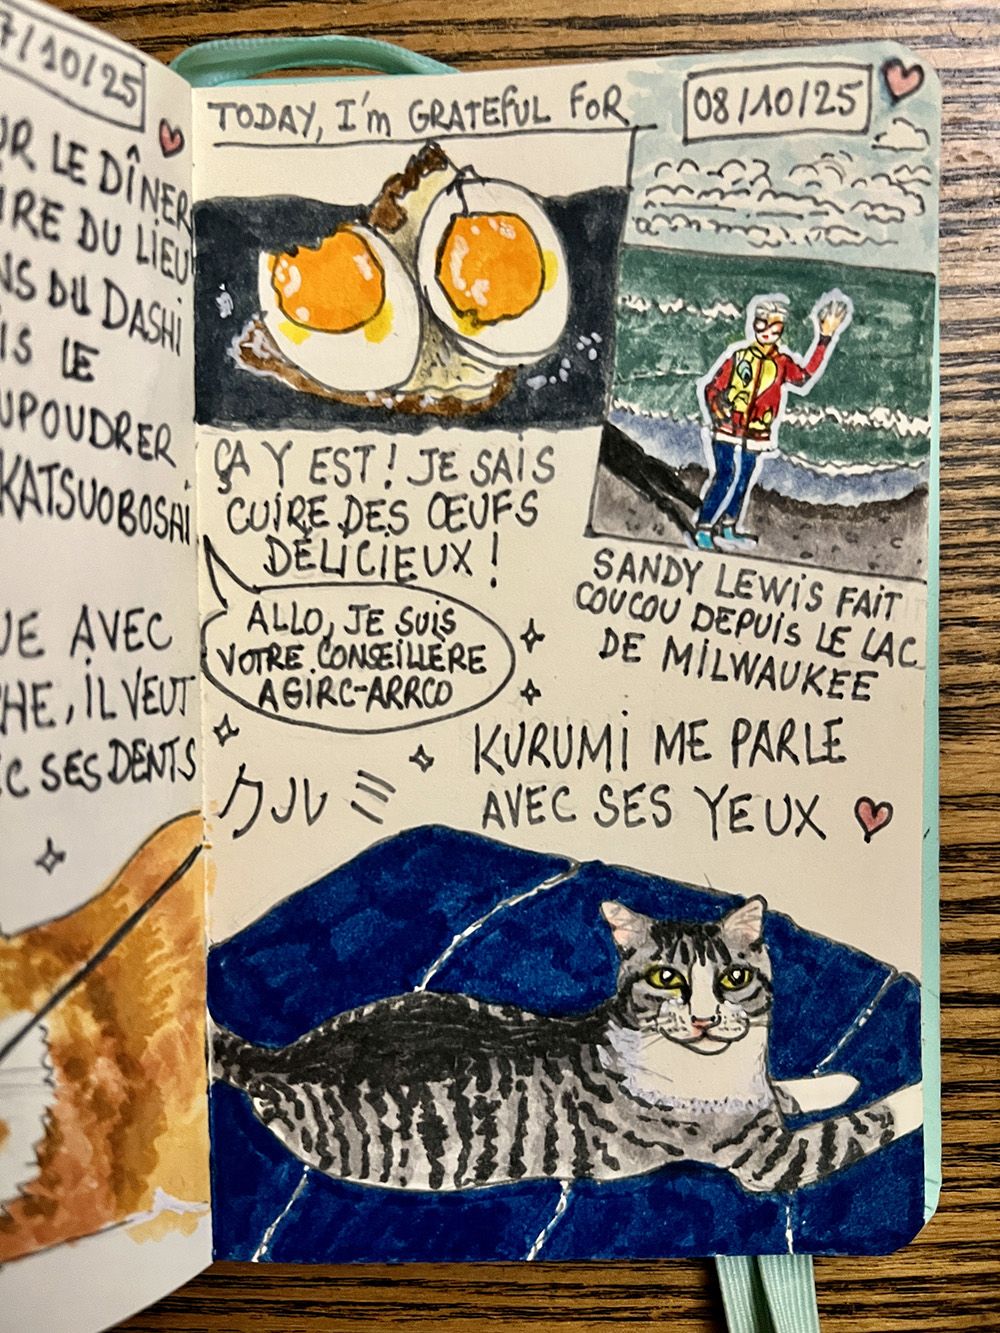 7/10/25
UR LE DÎNER
IRE DU LIEU
NS DU DASHI
IS LE
UPOUDRER
KATSUOBOSHI
UE AVEC
CHE, IL VEUT
EC SES DENTS
TODAY, I'm GRATEFUL FOR
08/10/25
ÇA Y EST ! JE SAIS
CUIRE DES ŒUFS
DÉLICIEUX !
SANDY LEWIS FAIT
COUCOU DEPUIS LE LAC
DE MILWAUKEE
ALLO, JE SUIS
VOTRE CONSEILLÈRE
AGIRC-ARRCO
クルミ
KURUMI ME PARLE
AVEC SES YEUX